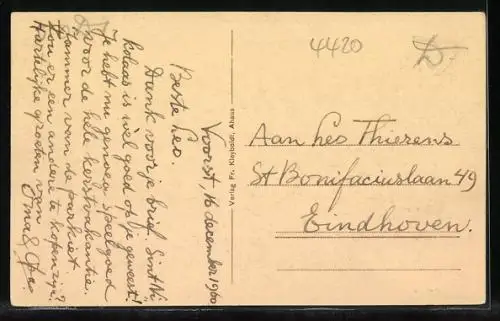 Voorst, 16 december 1960
Beste Leo.
Dank voor je brief. Sint Ni-
kolaas is wel goed op je geweest!
Je hebt nu genoeg speelgoed
voor de hele kerstvakantie.
Jammer van de parkiet
Zou er een andere te kopen zijn?
Hartelijke groeten van
Oma &
Verlag Fr. Kleyboldt, Ahaus
4420
Aan Leo Thierens
St Bonifaciuslaan 49
Eindhoven.